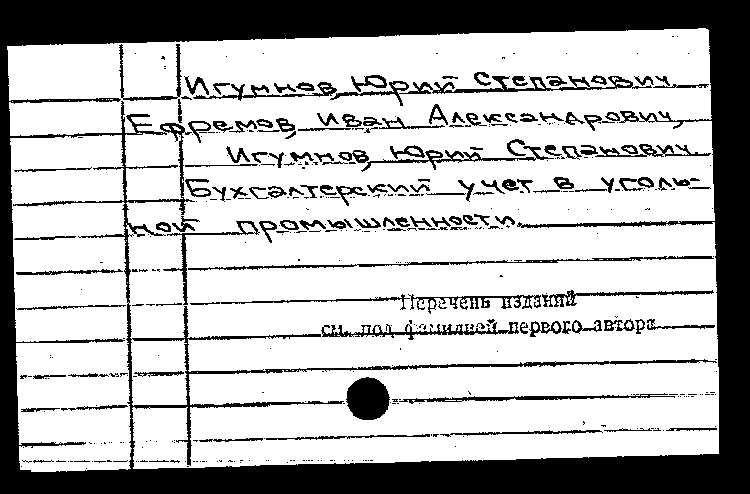 Игумнов, Юрий Степанович.
Ефремов, Иван Александрович,
Игумнов, Юрий Степанович.
Бухгалтерский учет в уголь-
ной промышленности.
Перечень изданий
см. под фамилией первого автора